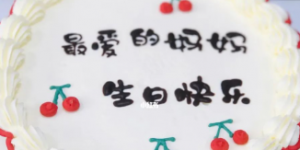 最爱的妈妈
生日快乐